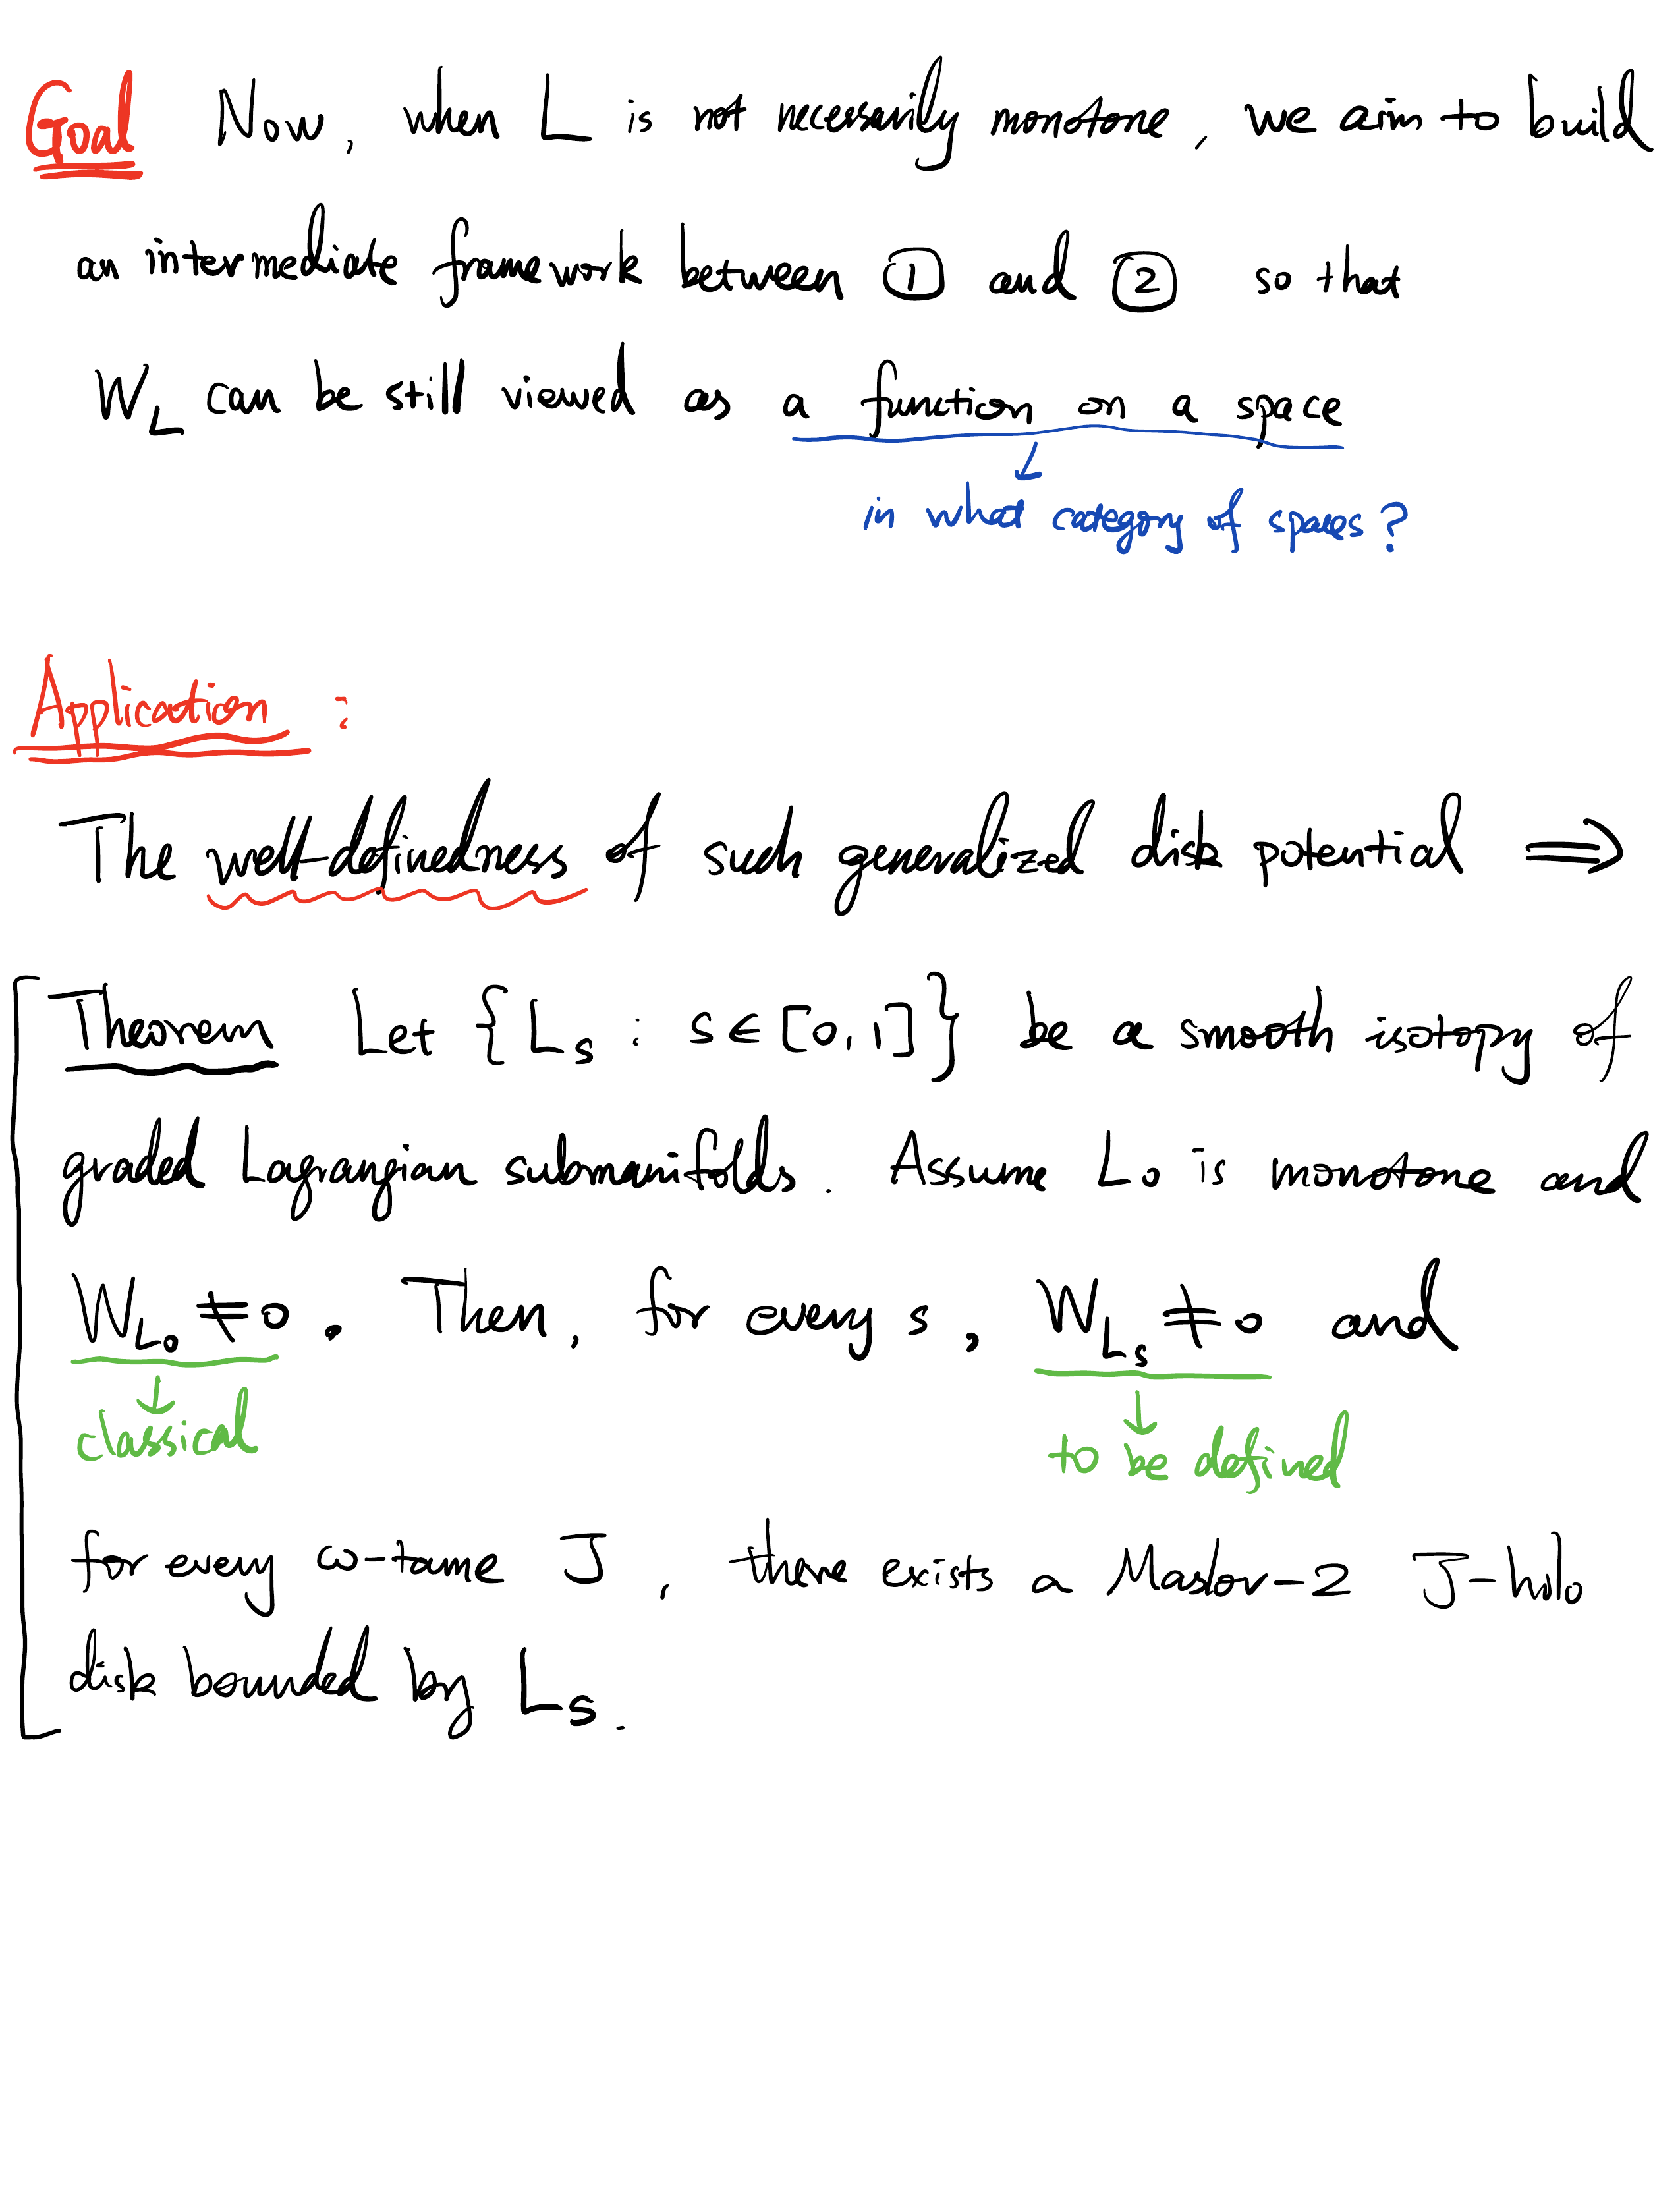 Goal Now, when L is not necessarily monotone, we aim to build
an intermediate framework between ① and ② so that
W_L can be still viewed as a function on a space
↓
in what category of spaces?
Application :
The well-definedness of such generalized disk potential ⟹
Theorem Let {L_s : s ∈ [0,1]} be a smooth isotopy of
graded Lagrangian submanifolds. Assume L_0 is monotone and
W_{L_0} ≠ 0. Then, for every s, W_{L_s} ≠ 0 and
↓ ↓
classical to be defined
for every ω-tame J, there exists a Maslov-2 J-holo
disk bounded by L_s.